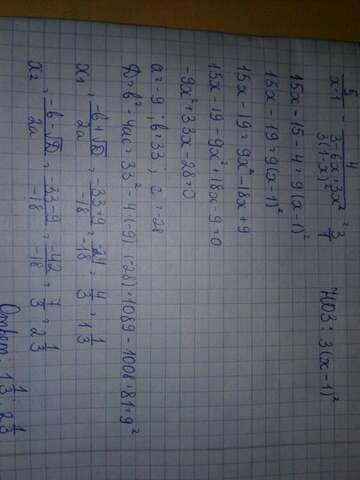 5/(x-1) - 4/(3-6x+3x²) = 3/1 ЧОЗ: 3(x-1)²
3(1-x)²
15x-15-4=9(x-1)²
15x-19=9(x-1)²
15x-19=9x²-18x+9
15x-19-9x²+18x-9=0
-9x²+33x-28=0
a=-9; b=33; c=-28
D=b²-4ac=33²-4·(-9)·(-28)=1089-1008=81=9²
x₁=(-b+√D)/2a=(-33+9)/-18=-24/-18=4/3=1 1/3
x₂=(-b-√D)/2a=(-33-9)/-18=-42/-18=7/3=2 1/3
Ответ: 1 1/3; 2 1/3